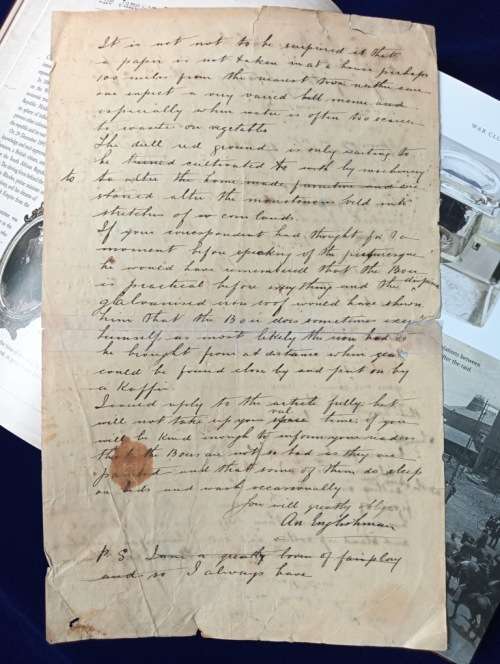 The Jameson
WAR CL
It is not not to be surprised at that
a paper is not taken in at a house perhaps
100 miles from the nearest town neither can
one expect a very varied bill menu and
especially when water is often too scarce
to waste on vegetable
The dull red ground is only waiting to
be turned cultivated to with by machinery
to to alter the home made furniture and
alter the monotonous veld into
stretches of corn lands.
If your correspondent had thought for a
moment before speaking of the picturesque
he would have remembered that the Boer
is practical before everything and the
galvanised iron roof would have shown
him that the Boer does sometimes exert
himself as most likely the iron had to
be brought from at distance when
could be found close by and put on by
a Kaffir.
I could reply to the article fully but
will not take up your time; if you
will be kind enough to inform your readers
that the Boers are not so bad as they are
and that some of them do sleep
on beds and wash occasionally
You will greatly oblige
An Englishman
P. S. I am a great lover of fairplay
and so I always have
between
after the raid